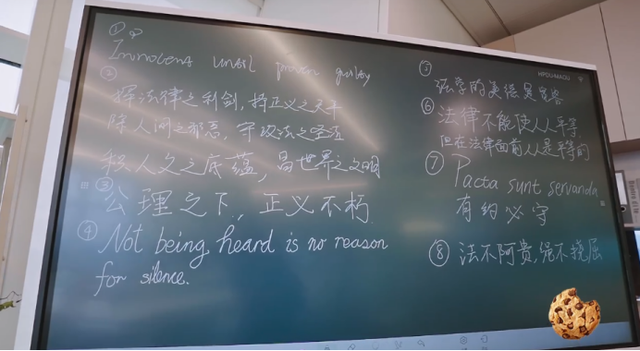 ①
Innocent until proven guilty
②
挥法律之利剑,持正义之天平
除人间之邪恶,守政法之圣洁
积人文之底蕴,昌世界之文明
③
公理之下,正义不朽
④ Not being heard is no reason
for silence.
⑤
法学的是
⑥ 法律不能使人人平等
但在法律面前人人是平等的
⑦ Pacta sunt servanda
有约必守
⑧ 法不阿贵,绳不挠屈